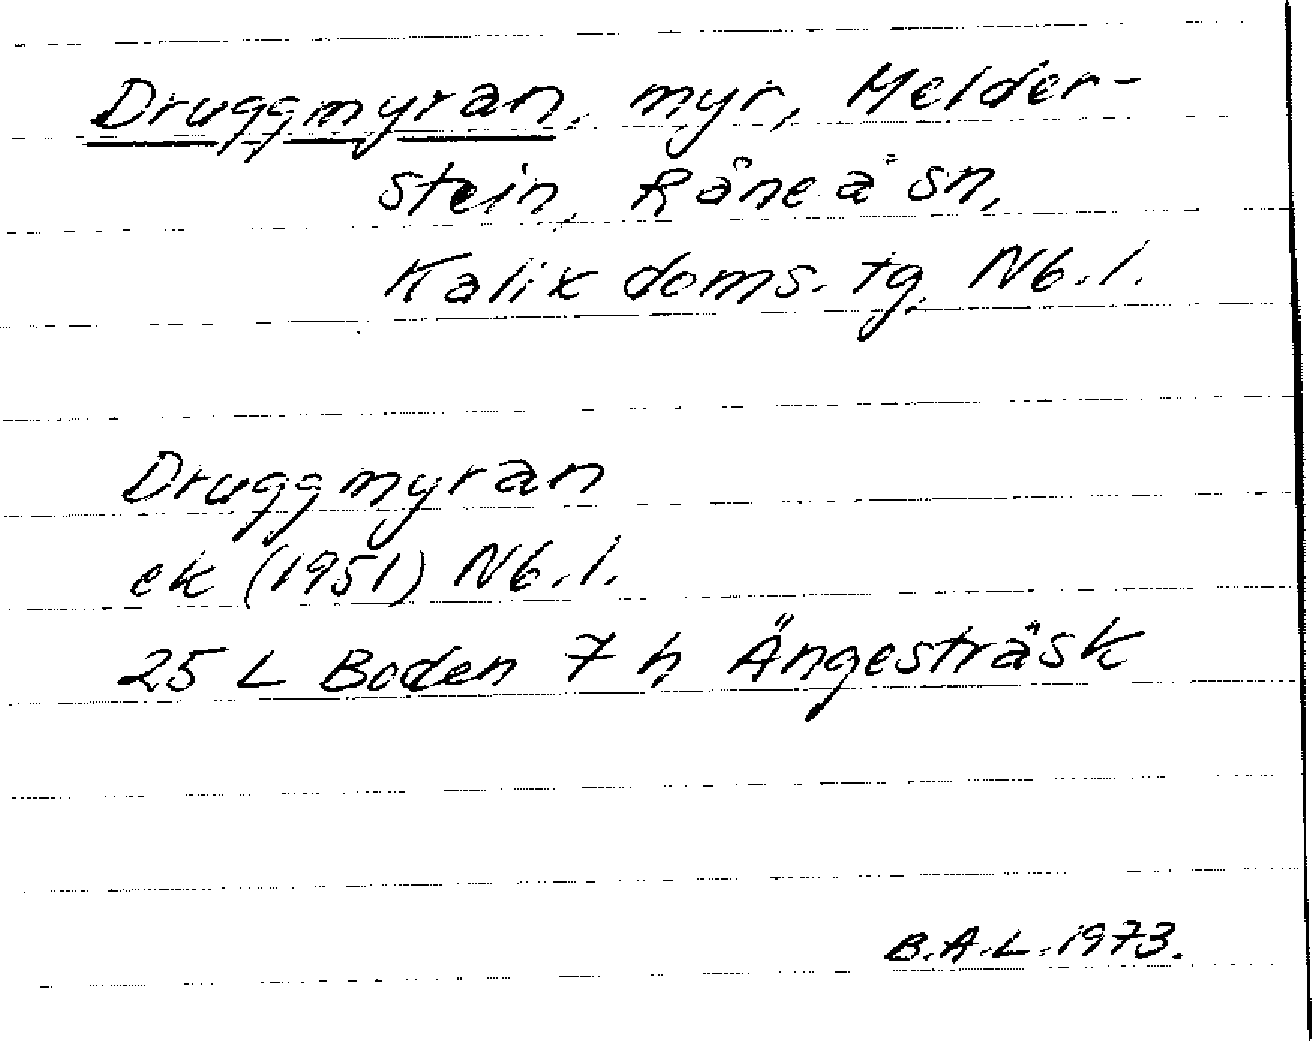 Druggmyran, myr, Melder-
stein, Råneå sn,
Kalix doms. tg, Nb. l.
Druggmyran
ek (1951) Nb. l.
25 L Boden 7 h Ängesträsk
B.A.L. 1973.